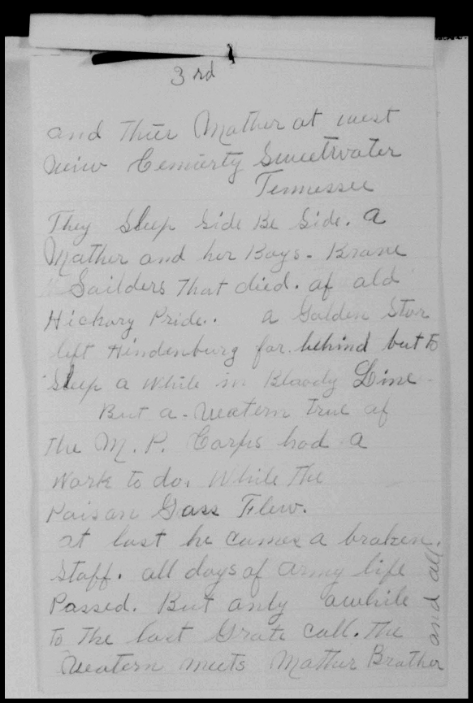 3rd
and Thier Mother at west
veiw Cemierty Sweetwater
Tennessee
They Sleep Side Be Side. a
Mother and her Boys. Brave
Soilders That died. of old
Hickory Pride. . a Golden Star
left Hindenburg far behind but to
Sleep a while in Bloody Line
But a. veatern true of
the M. P. Corps had a
Work to do. While the
Poison Gass Flew.
at last he comes a broken.
Staff. all days of Army life
Passed. But only awhile
to the last Grate Call. The
veatern meets Mother Brother
and all